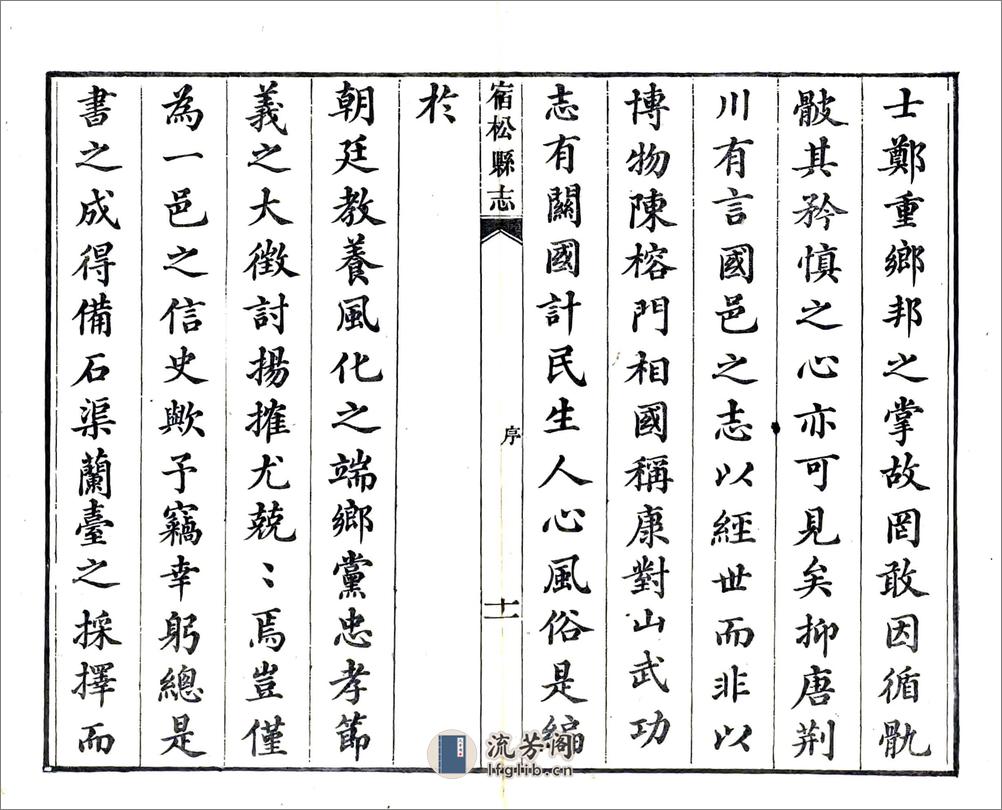 士鄭重鄉邦之掌故罔敢因循骫
骳其矜慎之心亦可見矣抑唐荆
川有言國邑之志以經世而非以
博物陳榕門相國稱康對山武功
志有關國計民生人心風俗是編
宿松縣志
序
十一
於
朝廷教養風化之端鄉黨忠孝節
義之大徵討揚搉尤兢〻焉豈僅
為一邑之信史歟予竊幸躬總是
書之成得備石渠蘭臺之採擇而
流芳閣
lfglib.cn